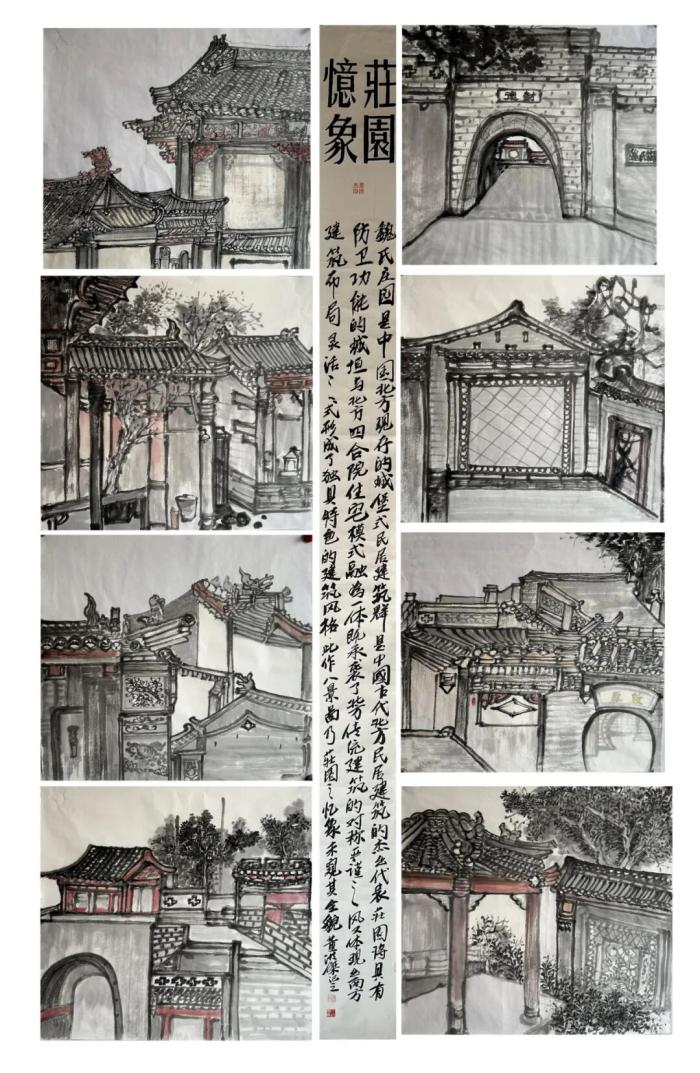 莊園
憶象
魏氏庄园是中国北方现存的城堡式民居建筑群是中國古代北方民居建筑的杰出代表莊園将具有
防卫功能的城垣与北方四合院住宅模式融为一体既承袭了北方传统建筑的对称严谨之风又体现出南方
建筑布局灵活之式形成了独具特色的建筑风格此作八景曲乃莊園之忆象未窥其全貌黄波